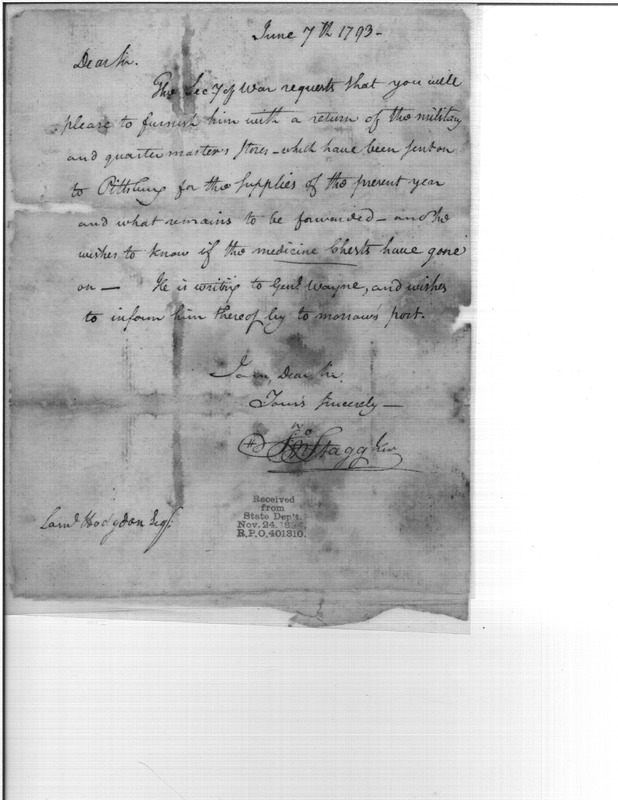 June 7th 1793-
Dear Sir.
The Secy of War requests that you will
please to furnish him with a return of the military
and quarter master's stores - which have been sent on
to Pittsburg for the supplies of the present year
and what remains to be forwarded - and he
wishes to know if the medicine Chests have gone
on - He is writing to Genl Wayne, and wishes
to inform him thereof by to morrow's post.
I am, Dear Sir,
Yours sincerely -
Jno Stagg Junr
Received
from
State Dep't.
Nov. 24.
R.P.O. 401310.
Saml Hodgdon Esqr.